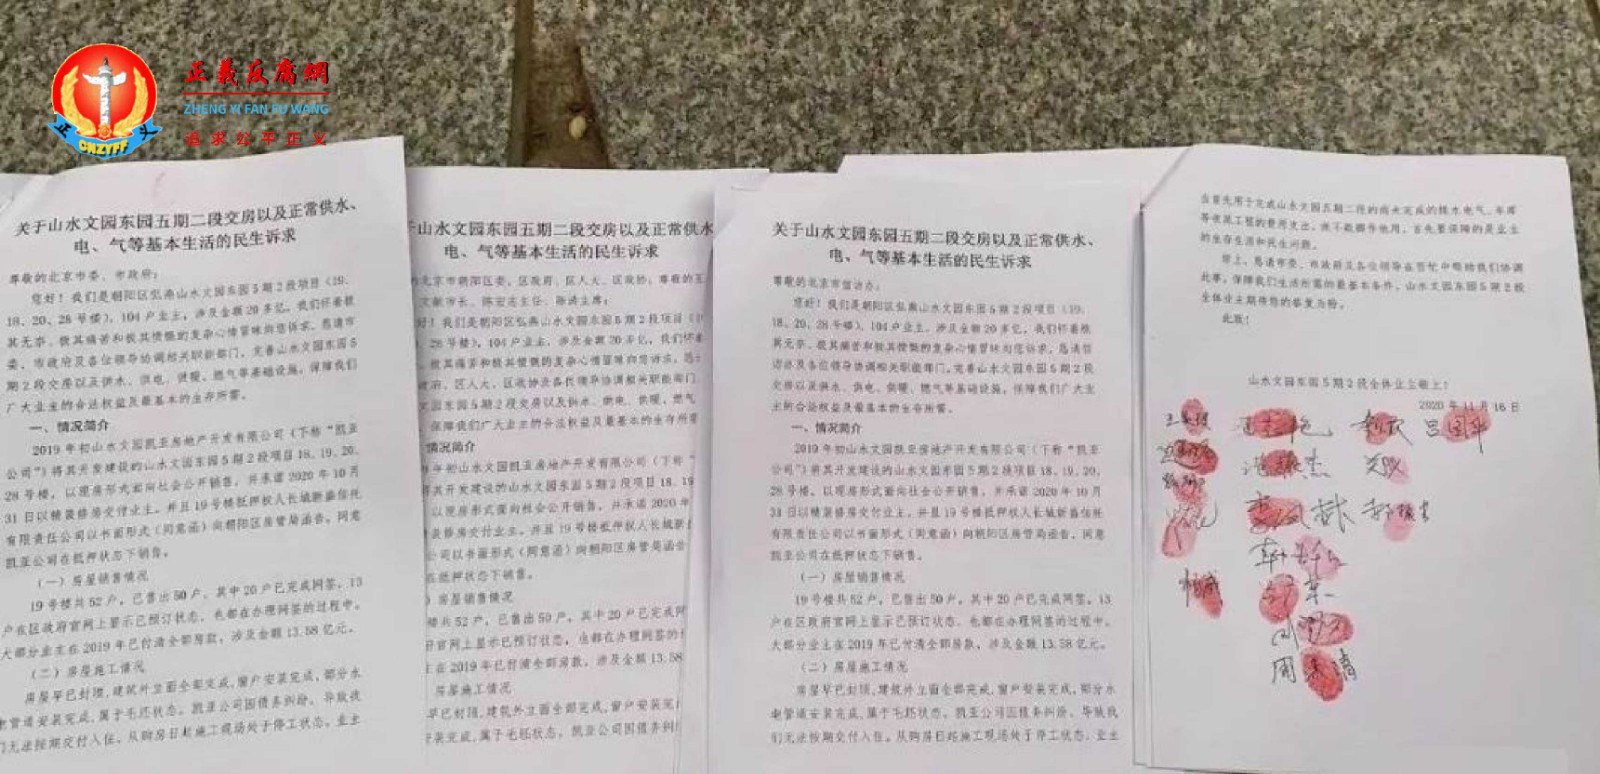 正義反腐網
ZHENG YI FAN FU WANG
追求公平正义
正 义
CNZYFF
关于山水文园东园五期二段交房以及正常供水、
电、气等基本生活的民生诉求
尊敬的北京市委、市政府:
您好!我们是朝阳区弘燕山水文园东园5期2段项目(19、
18、20、28号楼),104户业主,涉及金额20多亿,我们怀着极
其无奈、极其痛苦和极其愤慨的复杂心情冒昧向您诉求,恳请市
委、市政府及各位领导协调相关职能部门,完善山水文园东园5
期2段交房以及供水、供电、供暖、燃气等基础设施,保障我们
广大业主的合法权益及最基本的生存所需。
一、情况简介
2019年初山水文园凯亚房地产开发有限公司(下称“凯亚
公司”)将其开发建设的山水文园东园5期2段项目18、19、20、
28号楼,以现房形式面向社会公开销售,并承诺2020年10月
31日以精装修房交付业主。并且19号楼抵押权人长城新盛信托
有限责任公司以书面形式(同意函)向朝阳区房管局函告,同意
凯亚公司在抵押状态下销售。
(一)房屋销售情况
19号楼共52户,已售出50户,其中20户已完成网签,13
户在区政府官网上显示已预订状态,也都在办理网签的过程中。
大部分业主在2019年已付清全部房款,涉及金额13.58亿元。
(二)房屋施工情况
房屋早已封顶,建筑外立面全部完成,窗户安装完成,部分水
电管道安装完成,属于毛坯状态。凯亚公司因债务纠纷,导致我
们无法按期交付入住。从购房日起施工现场处于停工状态,业主
山水文园东园五期二段交房以及正常供水
电、气等基本生活的民生诉求
北京市朝阳区委、区政府、区人大、区政协、尊敬的王
文献市长、陈宏志主任、陈涛主席:
好!我们是朝阳区弘燕山水文园东园5期2段项目(19
28号楼),104户业主,涉及金额20多亿,我们怀着
极其痛苦和极其愤慨的复杂心情冒昧向您诉求,恳
政府、区人大、区政协及各位领导协调相关职能部门
文园东园5期2段交房以及供水、供电、供暖、燃气
保障我们广大业主的合法权益及最基本的生存所需
情况简介
9年初山水文园凯亚房地产开发有限公司(下称“
将其开发建设的山水文园东园5期2段项目18、19
以现房形式面向社会公开销售,并承诺2020年
装修房交付业主。并且19号楼抵押权人长城新
公司以书面形式(同意函)向朝阳区房管局函
在抵押状态下销售。
)房屋销售情况
楼共52户,已售出50户,其中20户已完成网
府官网上显示已预订状态,也都在办理网签的
主在2019年已付清全部房款,涉及金额13.58
房屋施工情况
早已封顶,建筑外立面全部完成,窗户安装完
安装完成,属于毛坯状态。凯亚公司因债务纠
关于山水文园东园五期二段交房以及正常供水、
电、气等基本生活的民生诉求
尊敬的北京市信访办:
您好!我们是朝阳区弘燕山水文园东园5期2段项目(19、
18、20、28号楼),104户业主,涉及金额20多亿,我们怀着极
其无奈、极其痛苦和极其愤慨的复杂心情冒昧向您诉求,恳请信
访办及各位领导协调相关职能部门,完善山水文园东园5期2段
交房以及供水、供电、供暖、燃气等基础设施,保障我们广大业
主的合法权益及最基本的生存所需。
一、情况简介
2019年初山水文园凯亚房地产开发有限公司(下称“凯亚
公司”)将其开发建设的山水文园东园5期2段项目18、19、20、
28号楼,以现房形式面向社会公开销售,并承诺2020年10月
31日以精装修房交付业主。并且19号楼抵押权人长城新盛信托
有限责任公司以书面形式(同意函)向朝阳区房管局函告,同意
凯亚公司在抵押状态下销售。
(一)房屋销售情况
19号楼共52户,已售出50户,其中20户已完成网签,13
户在区政府官网上显示已预订状态,也都在办理网签的过程中。
大部分业主在2019年已付清全部房款,涉及金额13.58亿元。
(二)房屋施工情况
房屋早已封顶,建筑外立面全部完成,窗户安装完成,部分水
电管道安装完成,属于毛坯状态。凯亚公司因债务纠纷,导致我
们无法按期交付入住。从购房日起施工现场处于停工状态,业主
当首先用于完成山水文园五期二段的尚未完成的燃水电气、车库
等收尾工程的费用支出,决不能挪作他用,首先要保障的是业主
的生存生活和民生问题。
综上,恳请市委、市政府及各位领导在百忙中帮给我们协调
此事,保障我们生活所需的最基本条件。山水文园东园5期2段
全体业主期待您的答复为盼。
此致!
山水文园东园5期2段全体业主敬上!
2020年11月16日